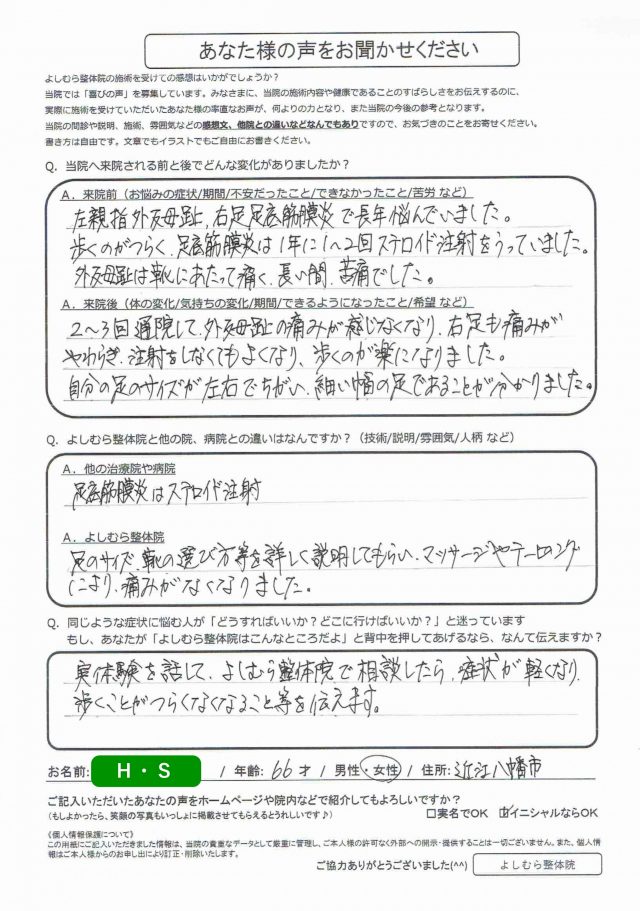 あなた様の声をお聞かせください
よしむら整体院の施術を受けての感想はいかがでしょうか？
当院では「喜びの声」を募集しています。みなさまに、当院の施術内容や健康であることのすばらしさをお伝えするのに、
実際に施術を受けていただいたあなた様の率直なお声が、何よりの力となり、また当院の今後の参考となります。
当院の問診や説明、施術、雰囲気などの感想文、他院との違いなどなんでもありですので、お気づきのことをお寄せください。
書き方は自由です。文章でもイラストでもご自由にお書きください。
Q. 当院へ来院される前と後でどんな変化がありましたか？
A. 来院前（お悩みの症状/期間/不安だったこと/できなかったこと/苦労 など）
左親指外反母趾、右足足底筋膜炎で長年悩んでいました。
歩くのがつらく、足底筋膜炎は1年に1〜2回ステロイド注射をうっていました。
外反母趾は靴にあたって痛く、長い間、苦痛でした。
A. 来院後（体の変化/気持ちの変化/期間/できるようになったこと/希望 など）
2〜3回通院して、外反母趾の痛みが感じなくなり、右足も痛みが
やわらぎ、注射をしなくてもよくなり、歩くのが楽になりました。
自分の足のサイズが左右でちがい、細い幅の足であることが分かりました。
Q. よしむら整体院と他の院、病院との違いはなんですか？（技術/説明/雰囲気/人柄 など）
A. 他の治療院や病院
足底筋膜炎はステロイド注射
A. よしむら整体院
足のサイズ、靴の選び方等を詳しく説明してもらい、マッサージやテーピング
により、痛みがなくなりました。
Q. 同じような症状に悩む人が「どうすればいいか？どこに行けばいいか？」と迷っています
もし、あなたが「よしむら整体院はこんなところだよ」と背中を押してあげるなら、なんて伝えますか？
実体験を話して、よしむら整体院で相談したら、症状が軽くなり、
歩くことがつらくなくなること等を伝えます。
お名前: H・S / 年齢: 66 才 / 男性・女性 / 住所: 近江八幡市
ご記入いただいたあなたの声をホームページや院内などで紹介してもよろしいですか？
（もしよかったら、笑顔の写真もいっしょに掲載させてもらえるとうれしいです♪） □実名でOK ☑イニシャルならOK
《個人情報保護について》
この用紙にご記入いただきました情報は、当院の貴重なデータとして厳重に管理し、ご本人様の許可なく外部への開示・提供することは一切ございません。また、個人情
報はご本人様からのお申し出により訂正・削除いたします。
ご協力ありがとうございました(^^) よしむら整体院